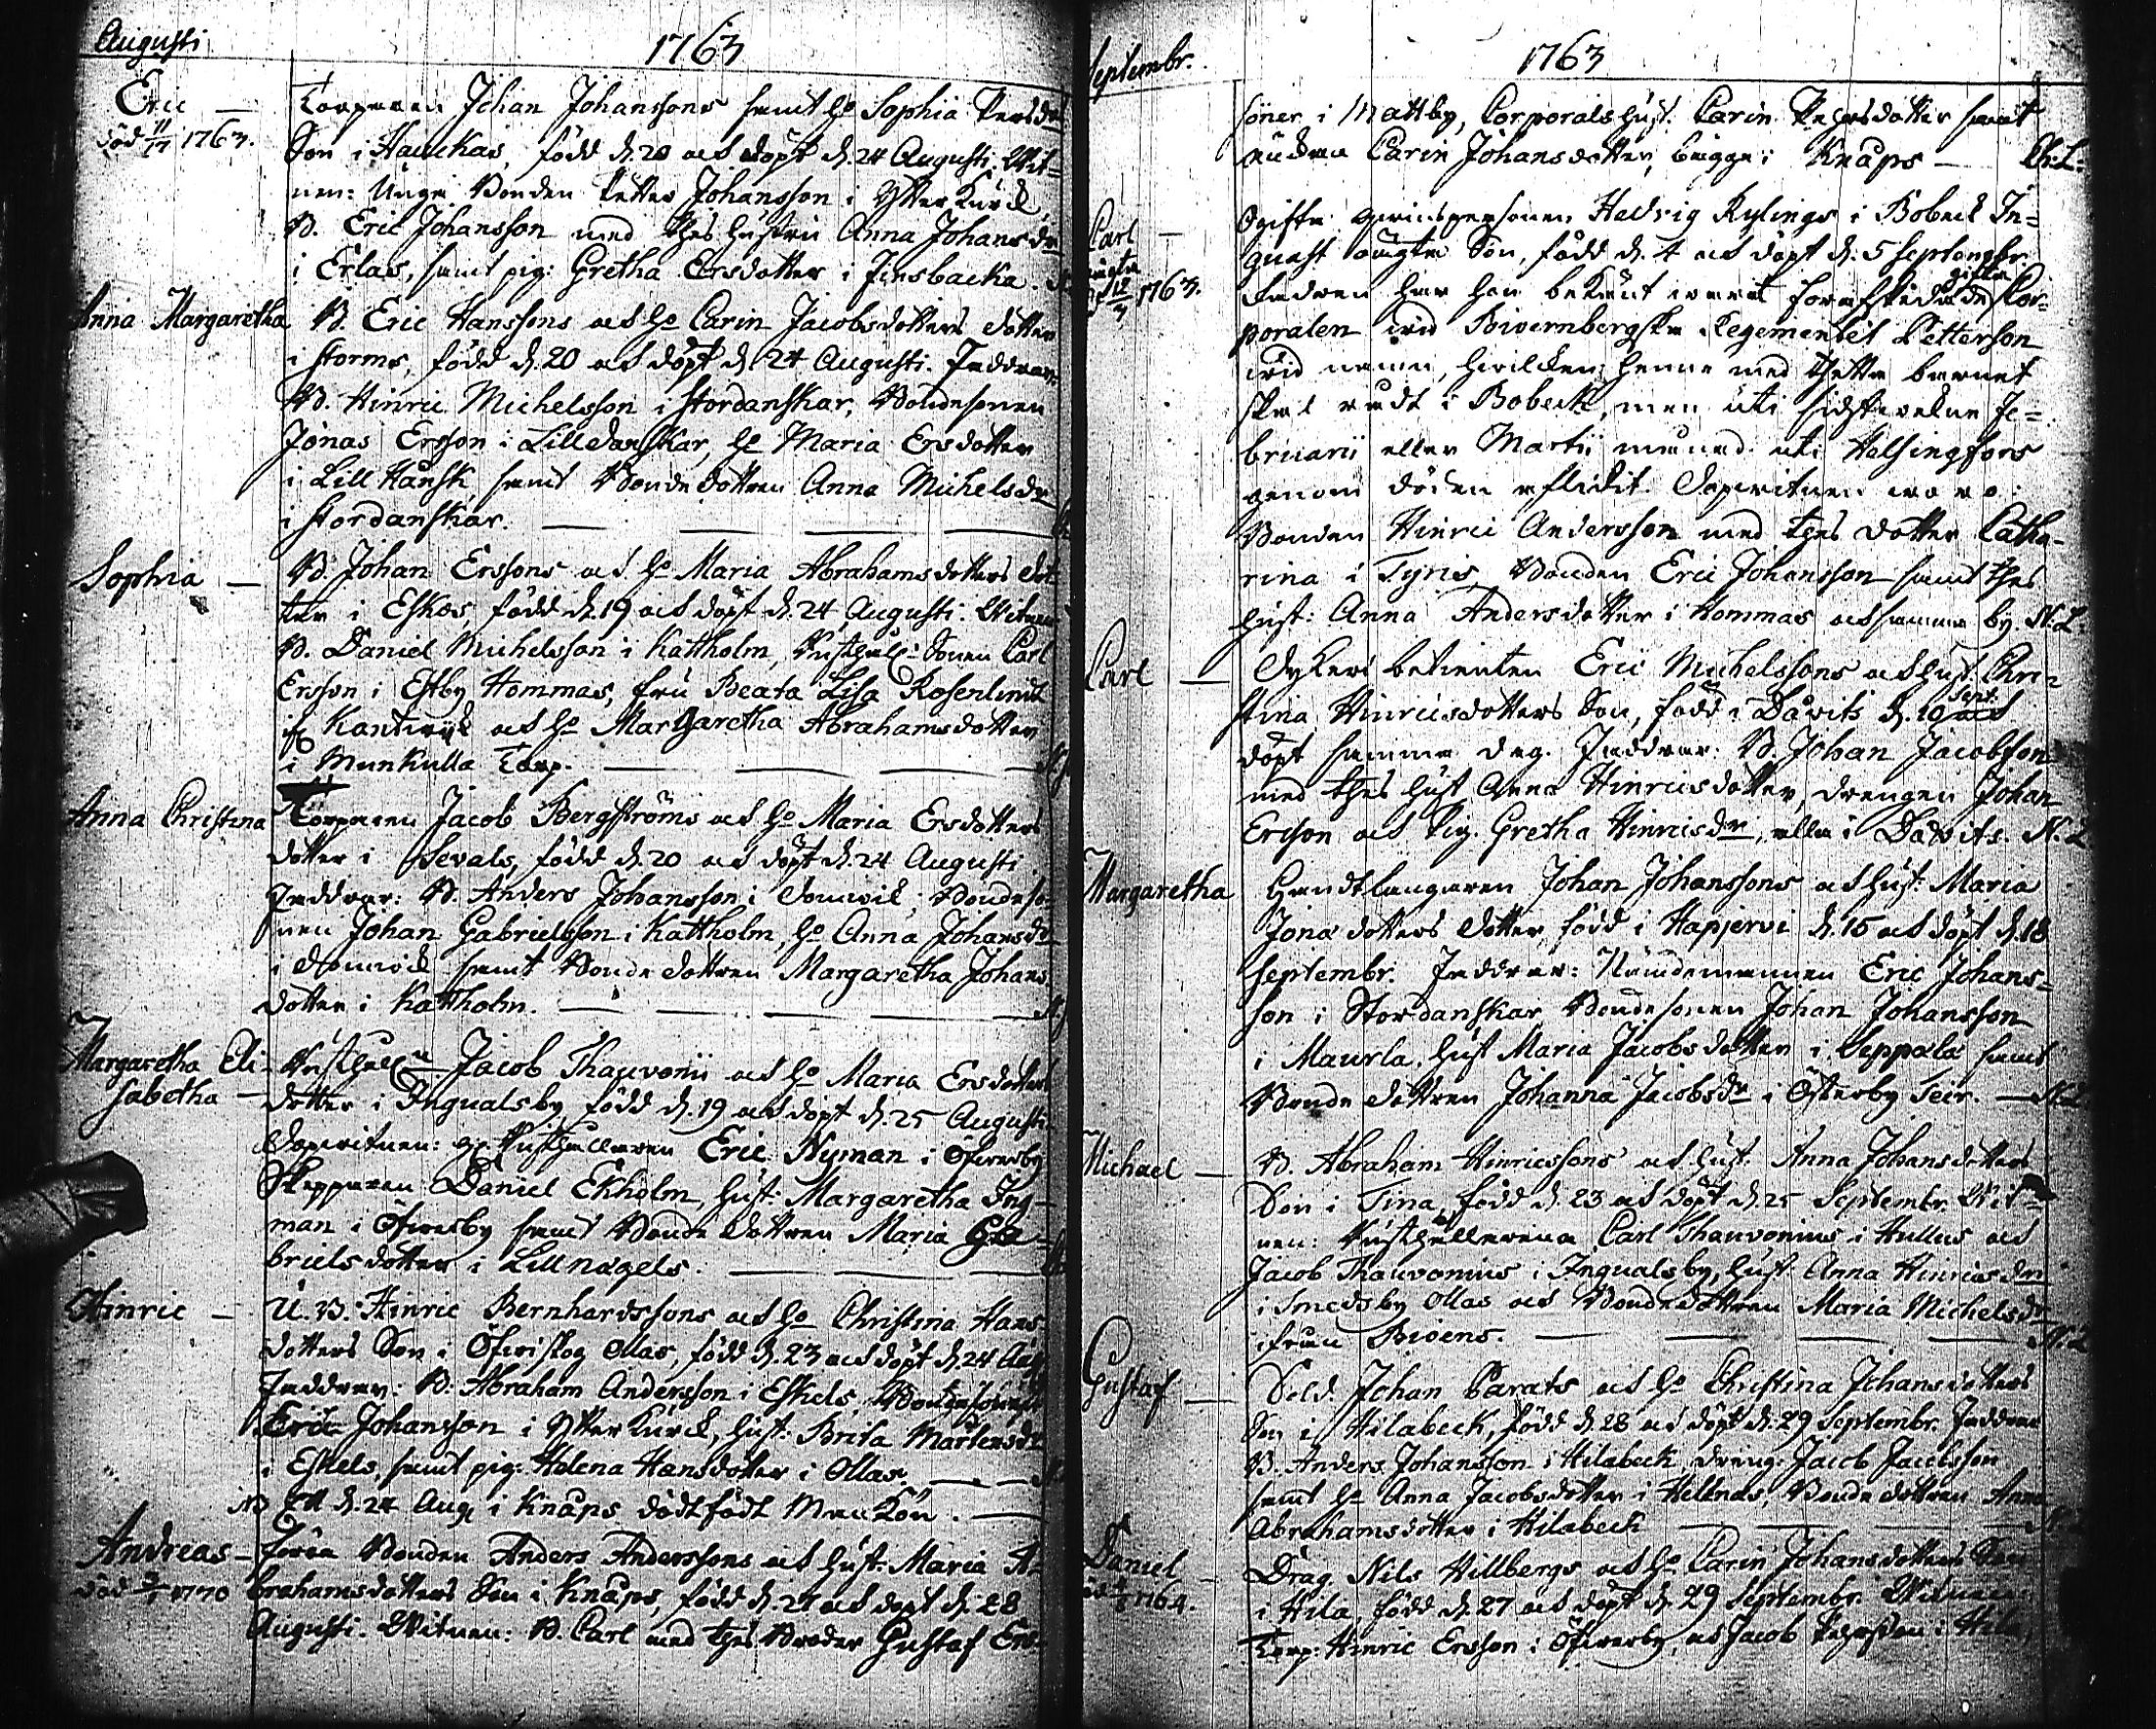 Augusti
1763
Eric —
död 11/17 1763.
Torparen Johan Johanssons samt H:o Sophia Persdr
Son i Hauckas, född d. 20 och döpt d. 24 Augusti. Wit=
nen: Unge Bonden Petter Johansson i Ytter Kurck
B. Eric Johansson med thes hustru Anna Johansdr
i Erlas, samt pig: Gretha Ersdotter i Jensbacka.
Anna Margaretha
B. Eric Hanssons och H:o Carin Jacobsdotters dotter
i Storms, född d. 20 och döpt d. 24 Augusti. Faddrar:
B. Hinric Michelsson i Stordanskar, Bondesonen
Jonas Ersson i Lilldanskar, H:o Maria Ersdotter
i Lill Hansk samt Bondedottren Anna Michelsdr
i Stordanskar.
Sophia —
B. Johan Erssons och H:o Maria Abrahamsdotters dot
ter i Eskos, född d. 19 och döpt d. 24 Augusti. Witnen
B. Daniel Michelsson i Kattholm, Rusthåll: Sonen Carl
Ersson i Estby Hommas, fru Beata Lisa Rosenlindt
if Kantwijk och H:o Margaretha Abrahamsdotter
i Munkulla Torp.
Anna Christina
Torparen Jacob Bergströms och H:o Maria Ersdotters
dotter i Sevals, född d. 20 och döpt d. 24 Augusti.
Faddrar: B. Anders Johansson i Domwik, Bondeso=
nen Johan Gabrielsson i Kattholm, H:o Anna Johansdr
i Domwik samt Bondedottren Margaretha Johans
dotter i Kattholm.
Margaretha Eli-
sabetha —
Rusthåll: Jacob Thauvonii och H:o Maria Ersdotters
dotter i Ingvalsby, född d. 19 och döpt d. 25 Augusti.
Dopwitnen: Rusthållaren Eric Nyman i Öfwerby
Skepparen Daniel Ekholm, hust: Margaretha Ing-
man i Öfwerby samt Bonde Dottren Maria Ga-
brielsdotter i Lillnägels.
Hinric —
U. B. Hinric Bernhardssons och H:o Christina Hans
dotters Son i Öfwiskog Ollas, född d. 23 och döpt d. 24 Aug.
Faddrar: B. Abraham Andersson i Eskels, Bondesonen
Eric Johansson i Ytter Kurck, hust: Brita Mårtensdr
i Eskels, samt pig: Helena Hansdotter i Ollas.
NB Ett d. 24 Aug i Knaps dödfödt Man Kön.
Andreas —
död 2/1 1770
Förra Bonden Anders Anderssons och hust: Maria A=
brahamsdotters Son i Knåps, född d. 27 och döpt d. 28
Augusti. Witnen: B. Carl med thes Broder Gustaf Ers-
Septembr.
1763
söner i Mattby, Corporals hust. Carin Pehrsdotter samt
änkan Carin Johansdotter, bägge i Knåps — N: L:
Carl —
oächta
död 12/3 1763.
Ogifta qwinspersonen Hedvig Rylings i Bobeck In=
quast oägta Son, född d. 4 och döpt d. 5 Septembr.
Fadren har hon bekänt warit förafskedade gifta Cor-
poralen wid Biwernbergska Regementet Petterson
wid namn, hwilken henne med thetta barnet
skal rådt i Bobeck, men uti sidstwekne Fe=
bruarii eller Martii månad uti Helsingfors
genom döden afledit. Dopwitnen woro:
Bonden Hinric Andersson med thes dotter Catha-
rina i Tyris, Bonden Eric Johansson samt thes
hust: Anna Andersdotter i Hommas och samma by. N: L:
Carl —
Dykeri betienten Eric Michelssons och hust. Chri=
stina Hinricsdotters Son, född i Davits d. 10 Sept. och
döpt samma dag. Faddrar: B. Johan Jacobsson
med thes hust Anna Hinricsdotter, drengen Johan
Ersson och Pig. Gretha Hinricsdr, alla i Davits. N. L.
Margaretha
Handtlangaren Johan Johanssons och hust: Maria
Jonæ dotters dotter, född i Hapjervi d. 15 och döpt d. 18
Septembr. Faddrar: Nämdemannen Eric Johans=
son i Stordanskar Bondesonen Johan Johansson
i Maurla, hust Maria Jacobsdotter i Seppälä samt
Bonde dottren Johanna Jacobsdr i Österby Teir.
Michael —
B. Abraham Hinricssons och hust. Anna Johansdotters
Son i Tina, född d. 23 och döpt d. 25 Septembr. Wit=
nen: Rusthållarena Carl Thauvonius i Hullus och
Jacob Thauvonius i Ingvalsby, hust. Anna Hinricsdr
i Smedsby Ollas och Bondedottren Maria Michelsdr
ifrån Bioens. N. L.
Gustaf —
Sold. Johan Parats och H:o Christina Johansdotters
Son i Hilabeck, född d. 28 och döpt d. 29 Septembr. Faddrar
B. Anders Johansson i Hilabeck, dreng: Jacob Jacobsson
samt H:o Anna Jacobsdotter i Hellnäs, Bondedottren Anna
Abrahamsdotter i Hilabeck
Daniel —
1764.
Drag. Nils Hillbergs och H:o Carin Johansdotters Son
i Hila, född d. 27 och döpt d. 29 Septembr. Witnen
Torp: Hinric Ersson i Öfwerby, och Jacob Pehrsson i Hila,